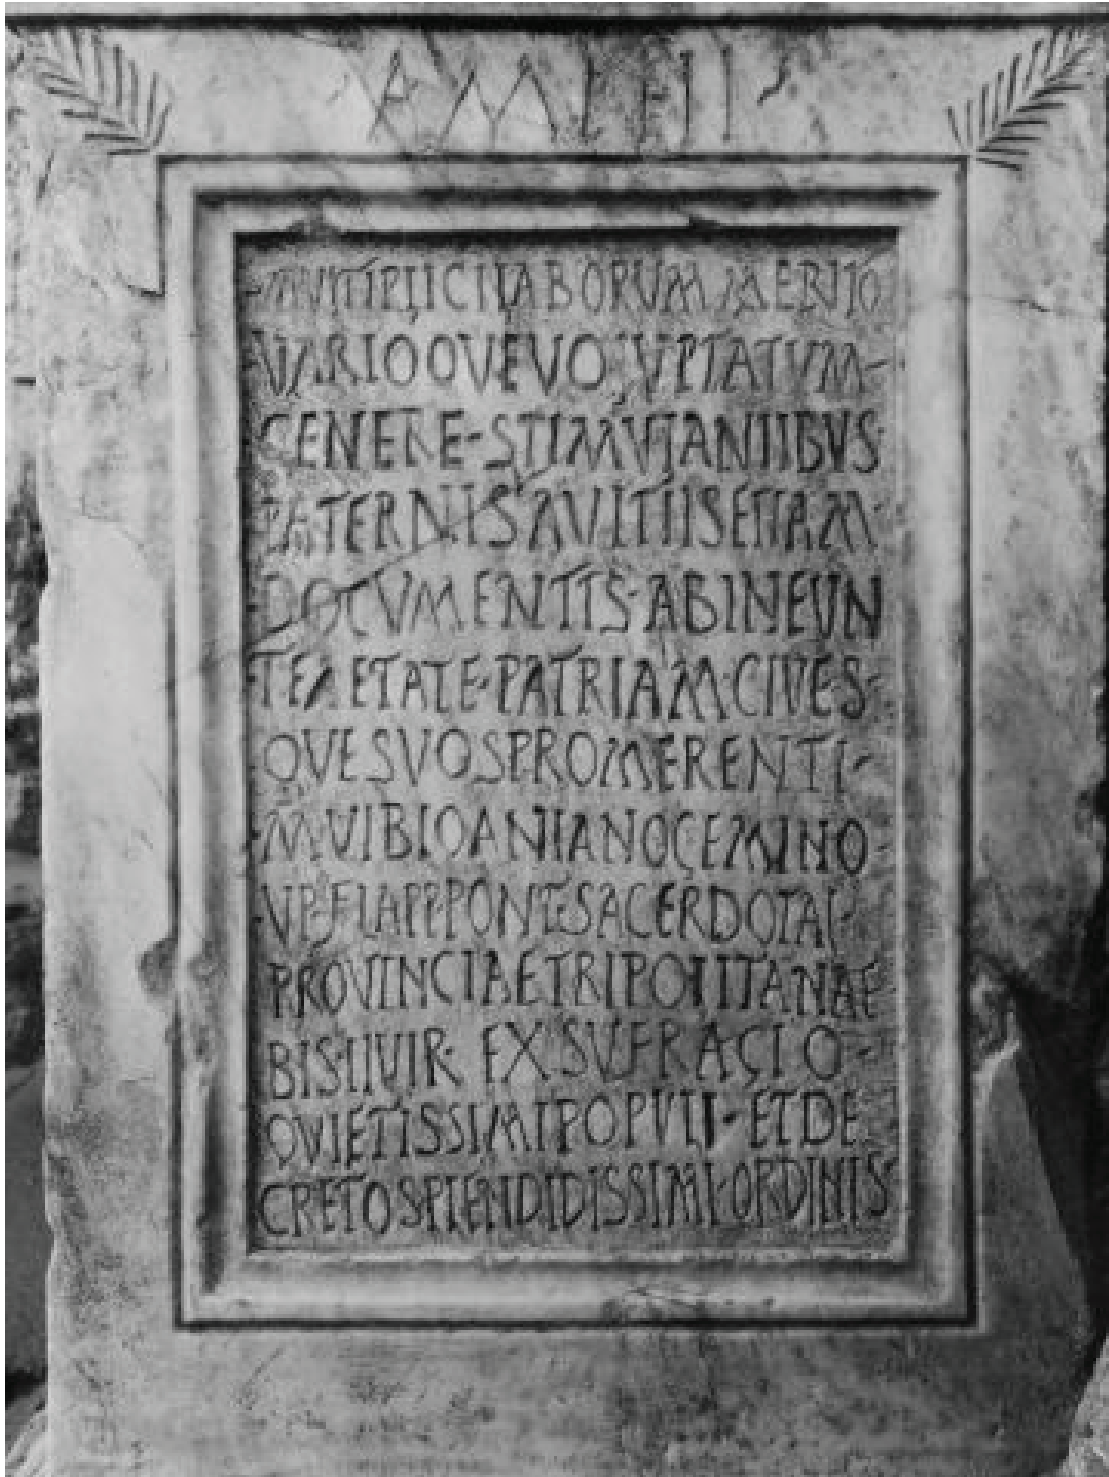 AMELII
MVLTIPLICI LABORVM MERITO
VARIOQVE VOLVPTATVM
GENERE STIMVLANTIBVS
PATERNIS AVITIIS ETIAM
DOCVMENTIS AB INEVN
TE AETATE PATRIAM CIVES
QVE SVOS PROMERENTI
M VIBIO ANIANO GEMINO
V P FL A P P PONT SACERDOTAL
PROVINCIAE TRIPOLITANAE
BIS IIVIR EX SVFRAGIO
QVIETISSIMI POPVLI ET DE
CRETO SPLENDIDISSIMI ORDINIS